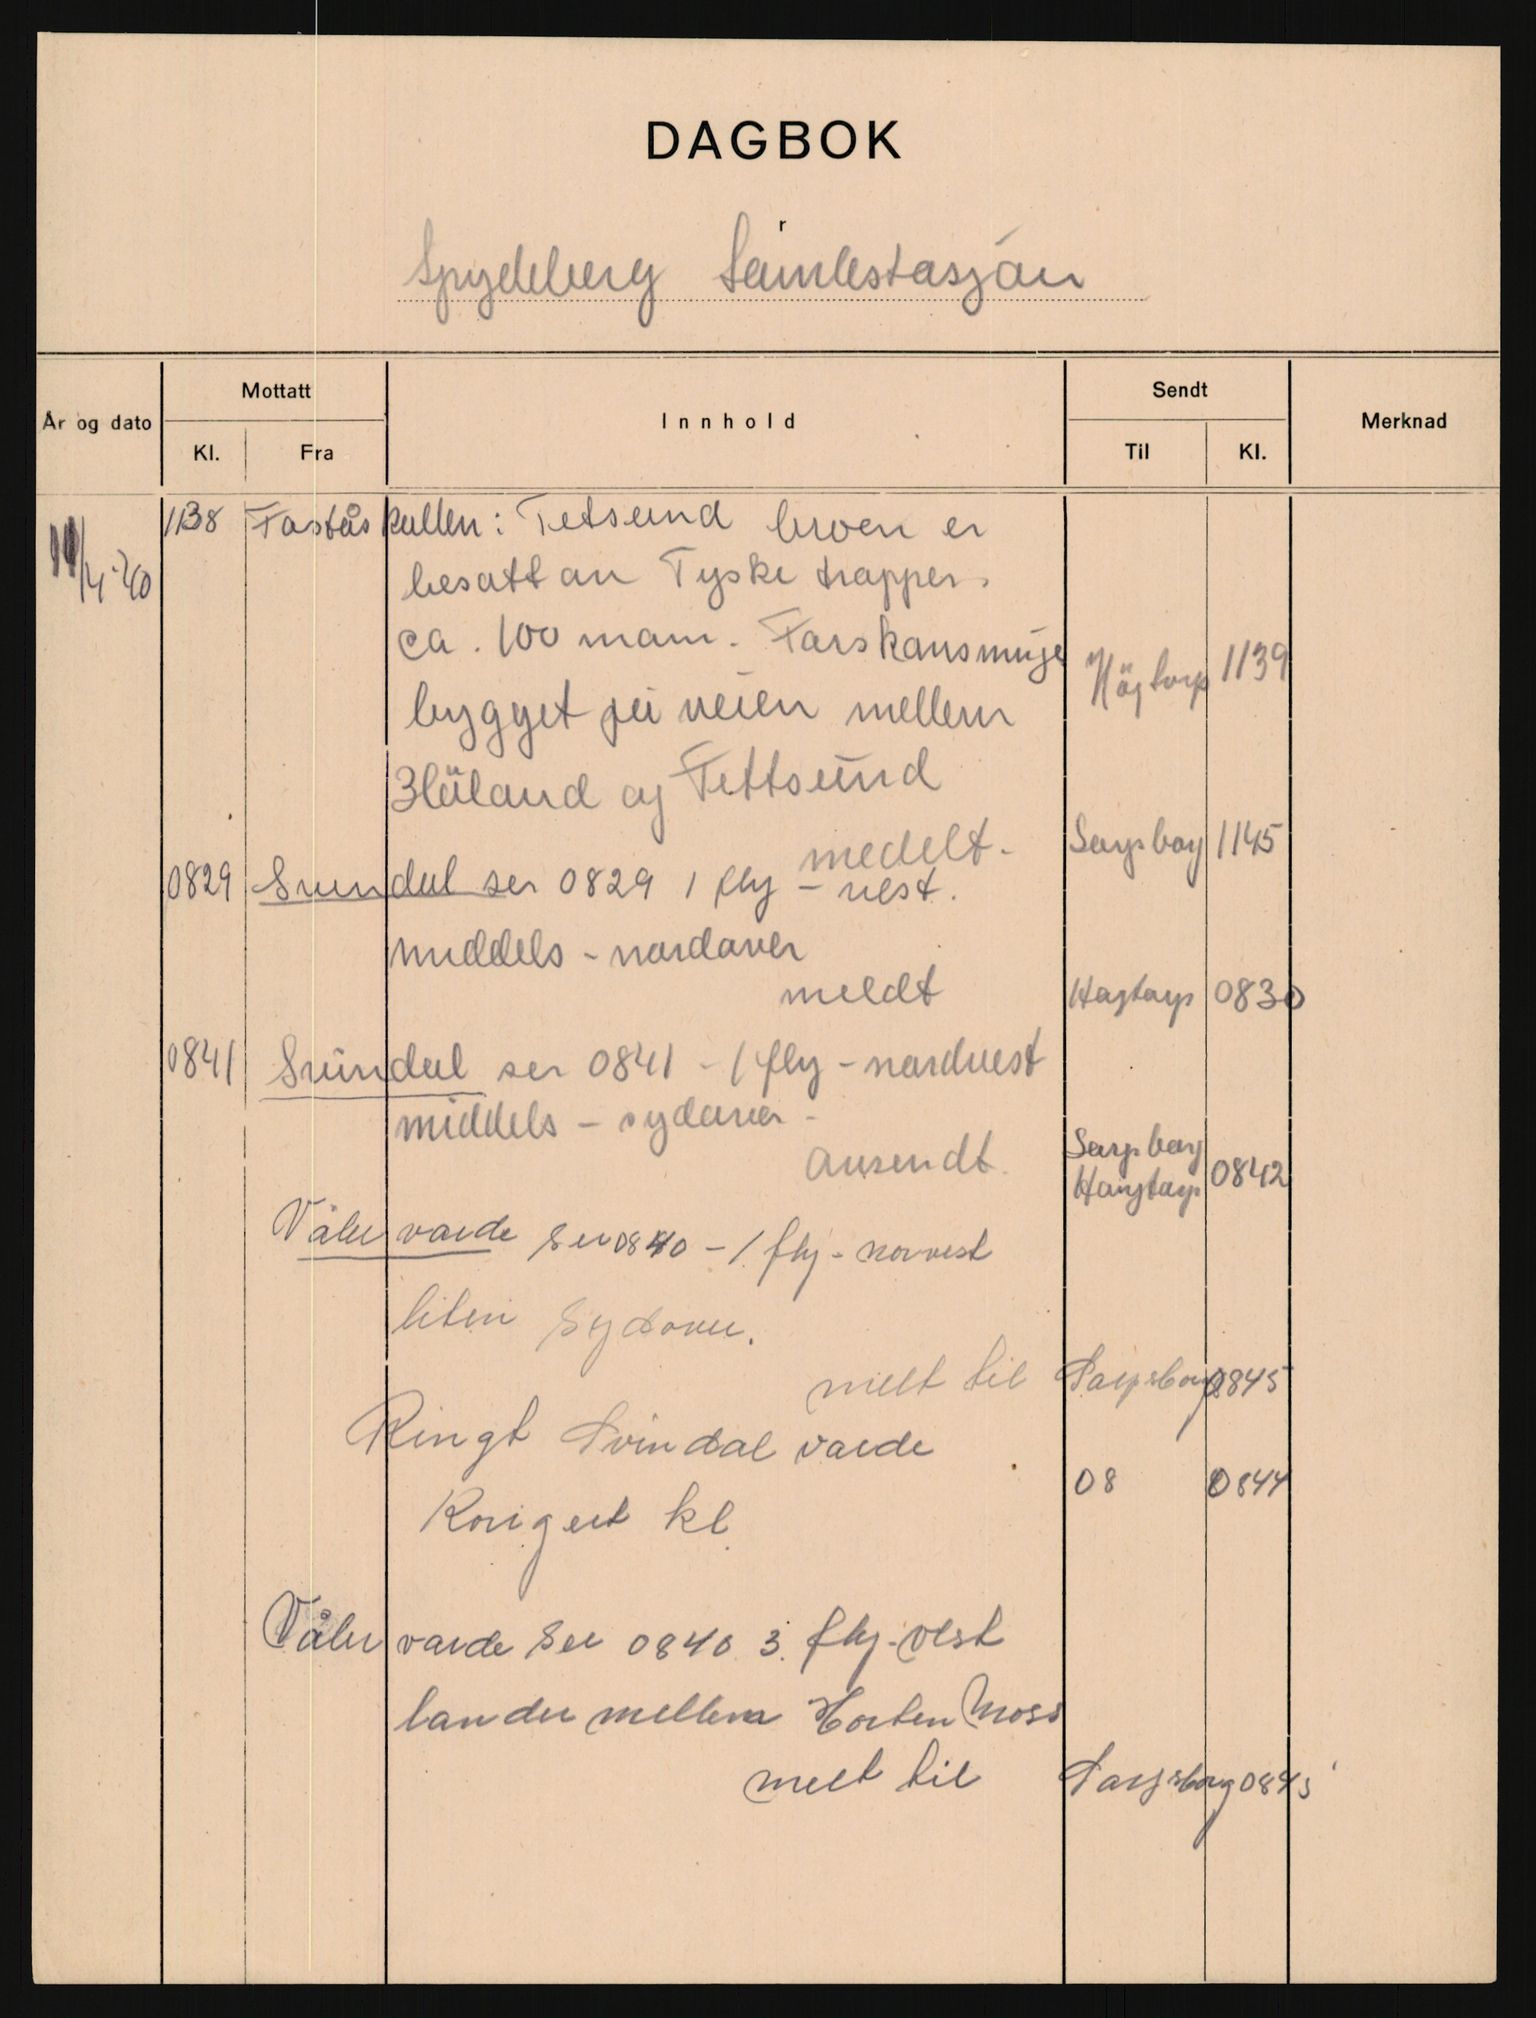 DAGBOK
Spydeberg Samlestasjon
År og dato Mottatt Kl. Fra Innhold Sendt Til Kl. Merknad
1138 Fastås kullen: Fetsund broen er
/4-40 besatt av Tyske tropper.
ca. 100 mann. Forskansninge Høgtorp 1139
bygget på veien mellem
Høland og Fettsund
medelt. Sarpsborg 1145
0829 Svindal ser 0829 1 fly - vest.
middels - nordover
meldt Høgtorp 0830
0841 Svindal ser 0841 - 1 fly - nordvest
middels - sydover -
avsendt. Sarpsborg
Høygtorp 0842
Våler varde ser 0840 - 1 fly - norvest
liten sydover.
melt til Sarpsborg 0845
Ringt Svindal varde
08 0844
Kl.
Våler varde ser 0840 3. fly - vest
lander mellem Horten Moss
melt til Sarpsborg 0845